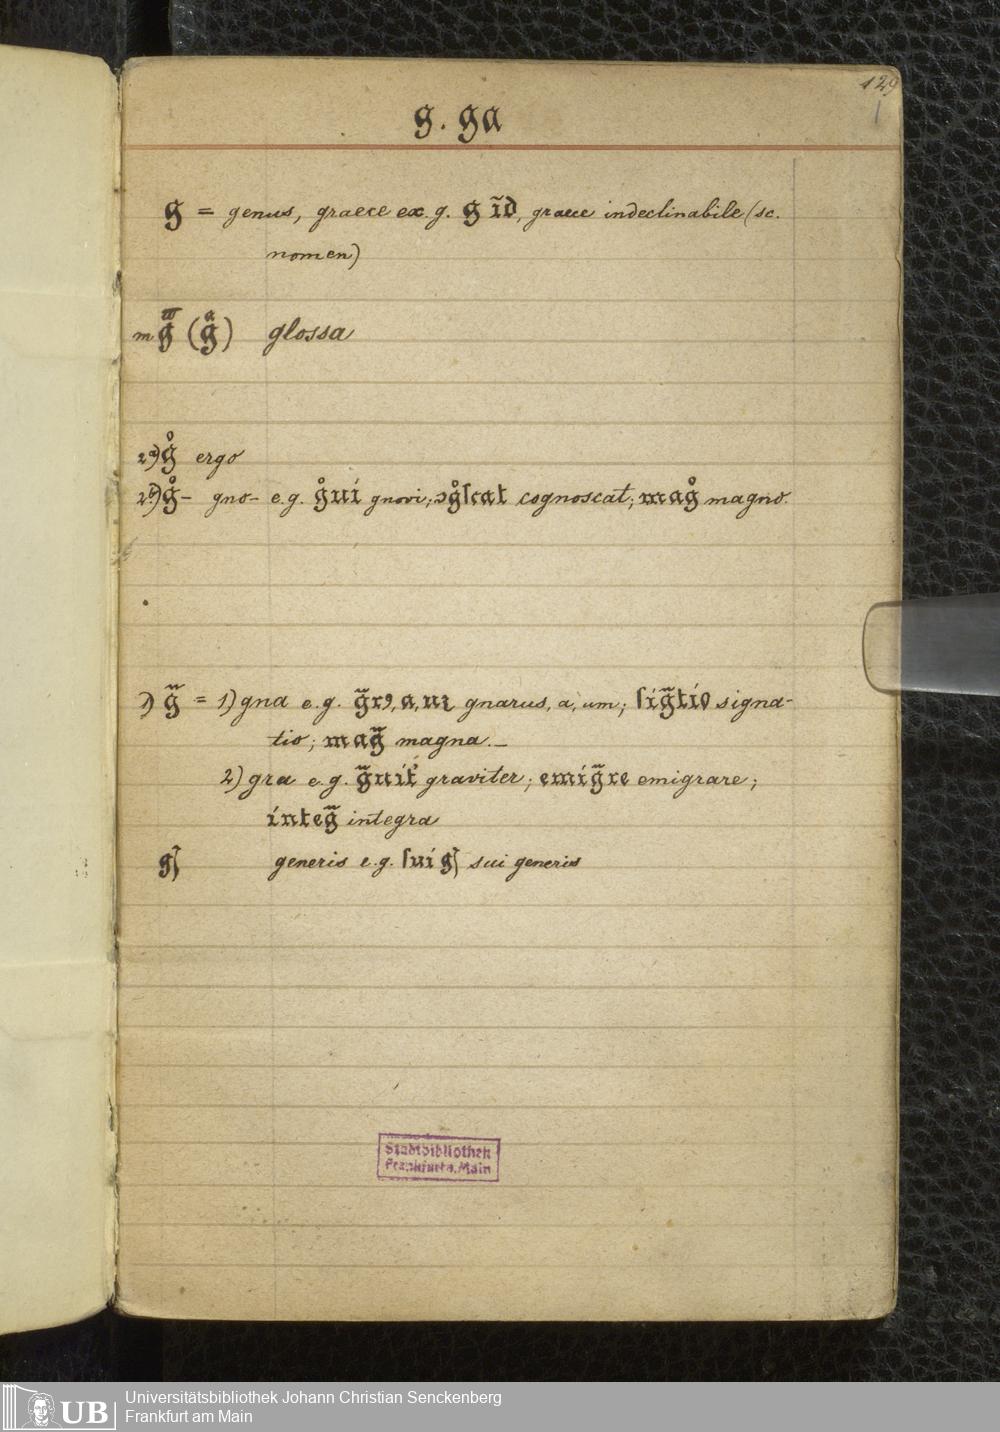 129
g. ga
g = genus, graece ex. g. g ĩd, graece indeclinabile (sc.
nomen)
m g̃ (gͣ) glossa
2a) g̊ ergo
2b) g̊- gno- e.g. g̊ui gnovi; ɔg̊ſcat cognoscat; mag̊ magno.
1) g̃ = 1) gna e.g. g̃rꝰ, a, uꝫ gnarus, a, um; ſig̃tio signa-
tio; mag̃ magna. —
2) gra e.g. g̃uit᷑ graviter; emig̃re emigrare;
integ̃ integra
gꝭ generis e.g. ſui gꝭ sui generis
Stadtbibliothek
Frankfurt a. Main
UB
Universitätsbibliothek Johann Christian Senckenberg
Frankfurt am Main